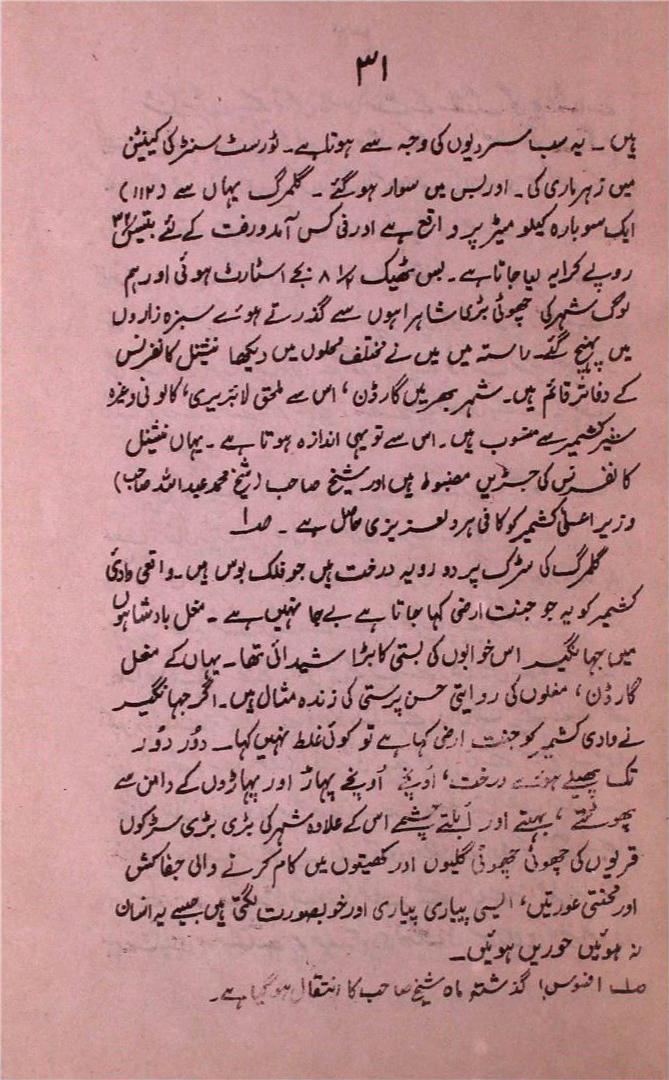 ۳۱
ہیں ۔ یہ سب سردیوں کی وجہ سے ہوتا ہے ۔ ٹورسٹ سنٹر کی کینٹین
میں زہر ماری کی ۔ اور بس میں سوار ہو گئے ۔ گلمرگ یہاں سے (۱۱۲)
ایک سو بارہ کیلو میٹر پر واقع ہے اور فی کس آمد و رفت کے لئے بتیس
روپے کرایہ لیا جاتا ہے ۔ بس ٹھیک ۸ بجے اسٹارٹ ہوئی اور ہم
لوگ شہر کی چھوٹی بڑی شاہراہوں سے گذرتے ہوئے سبزہ زاروں
میں پہنچ گئے۔ راستہ میں میں نے مختلف محلوں میں دیکھا نیشنل کانفرنس
کے دفاتر قائم ہیں۔ شہر بھر میں گارڈن ، اس سے ملحق لائبریری، کالونی وغیرہ
شیر کشمیر سے منسوب ہیں۔ اس سے تو یہی اندازہ ہوتا ہے ۔ یہاں نیشنل
کانفرنس کی جڑیں مضبوط ہیں اور شیخ صاحب (شیخ محمد عبداللہ صاحب)
وزیر اعلیٰ کشمیر کو کافی ہردلعزیزی حاصل ہے ۔ صا
گلمرگ کی سڑک پر دو رویہ درخت ہیں جو فلک بوس ہیں ۔ واقعی وادی
کشمیر کو یہ جو جنت ارضی کہا جاتا ہے بے جا نہیں ہے ۔ مغل بادشاہوں
میں جہانگیر اس خوابوں کی بستی کا بڑا شیدائی تھا ۔ یہاں کے مغل
گارڈن ، مغلوں کی روایتی حسن پرستی کی زندہ مثال ہیں۔ اگر جہانگیر
نے وادی کشمیر کو جنت ارضی کہا ہے تو کوئی غلط نہیں کہا۔ دُور دُور
تک پھیلے ہوئے درخت، اُونچے اُونچے پہاڑ اور پہاڑوں کے دامن سے
پھوٹتے ، بہتے اور اُبلتے چشمے اس کے علاوہ شہر کی بڑی بڑی سڑکوں
قریوں کی چھوٹی چھوٹی گلیوں اور کھیتوں میں کام کرنے والی جفاکش
اور محنتی عورتیں، ایسی پیاری پیاری اور خوبصورت لگتی ہیں جیسے یہ انسان
نہ ہوئیں حوریں ہوئیں ۔
صا افسوس! گذشتہ ماہ شیخ صاحب کا انتقال ہو گیا ہے ۔